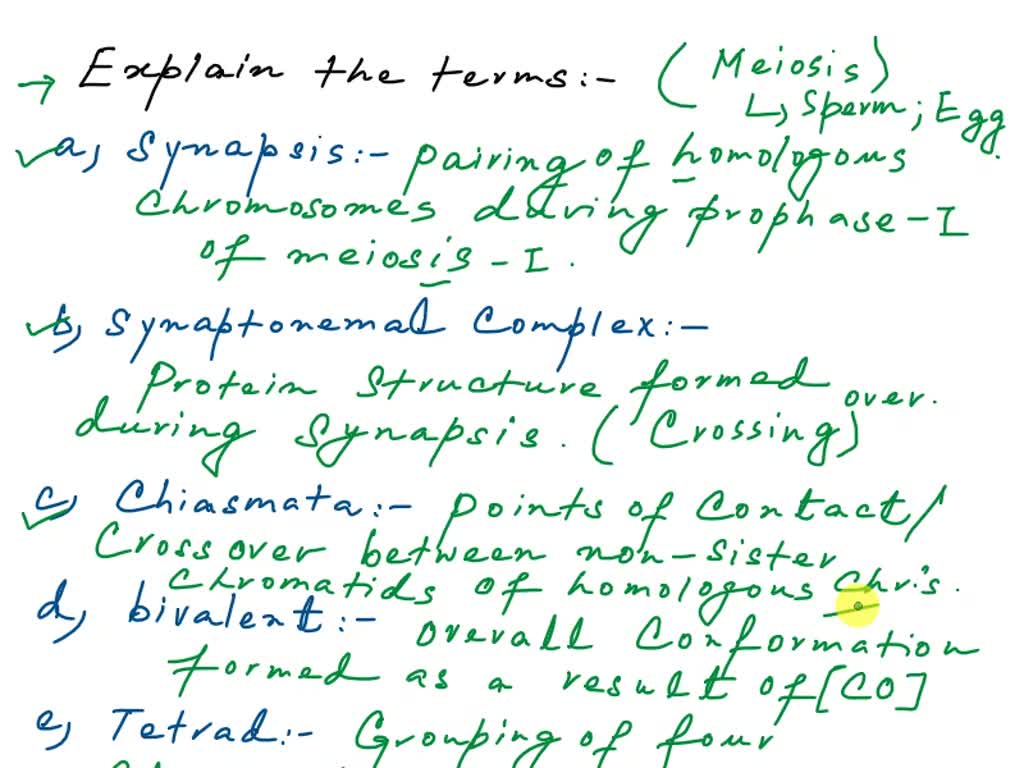 → Explain the terms:- (Meiosis)
↳ Sperm; Egg.
✓a, Synapsis:- Pairing of homologous
Chromosomes during prophase-I
of meiosis-I.
✓b, Synaptonemal Complex:-
Protein Structure formed
during Synapsis. (Crossing) over.
✓c, Chiasmata:- Points of Contact/
Cross over between non-sister
Chromatids of homologous Chr.'s.
d, bivalent:- Overall Conformation
formed as a result of [CO]
e, Tetrad:- Grouping of four